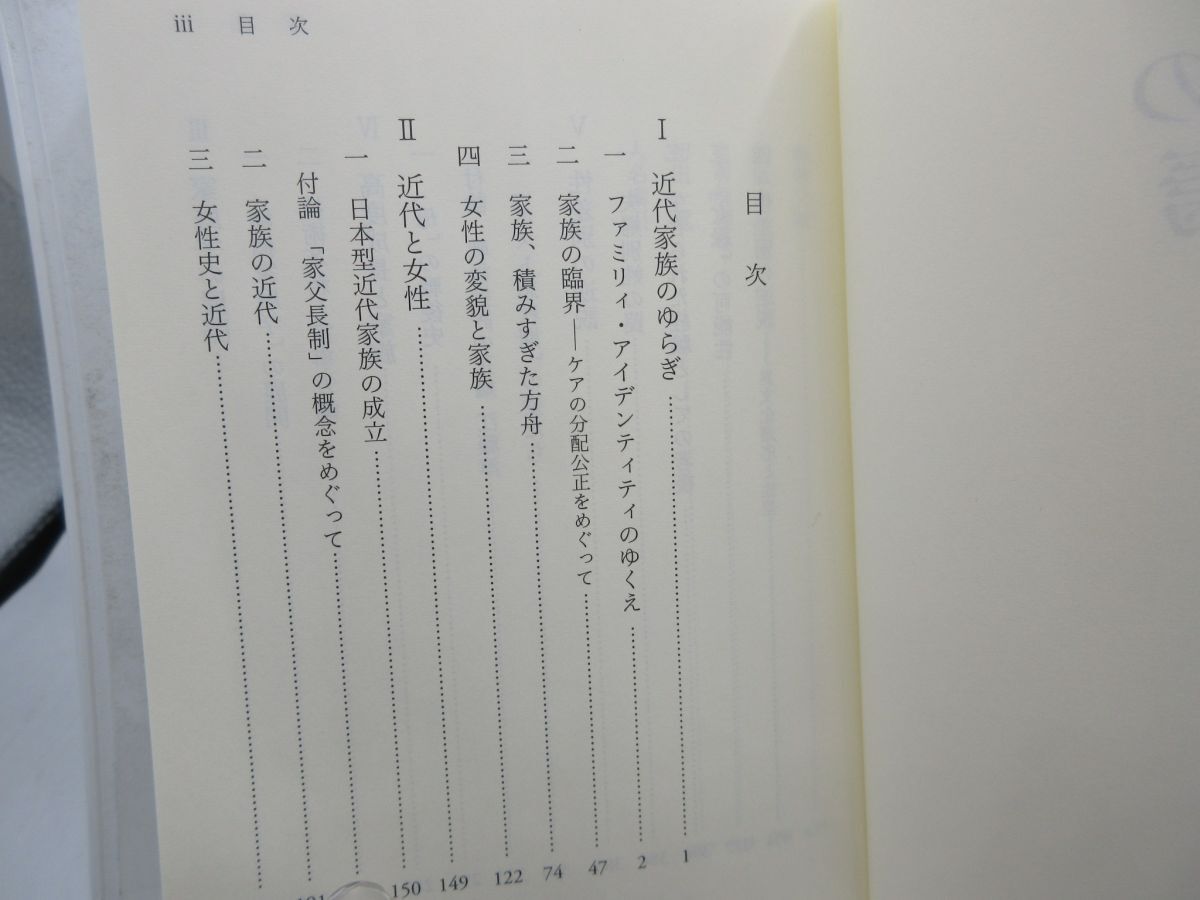 iii 目 次
目 次
Ⅰ 近代家族のゆらぎ …… 1
一 ファミリィ・アイデンティティのゆくえ …… 2
二 家族の臨界――ケアの分配公正をめぐって …… 47
三 家族、積みすぎた方舟 …… 74
四 女性の変貌と家族 …… 122
Ⅱ 近代と女性 …… 149
一 日本型近代家族の成立 …… 150
付論 「家父長制」の概念をめぐって ……
二 家族の近代 ……
三 女性史と近代 ……